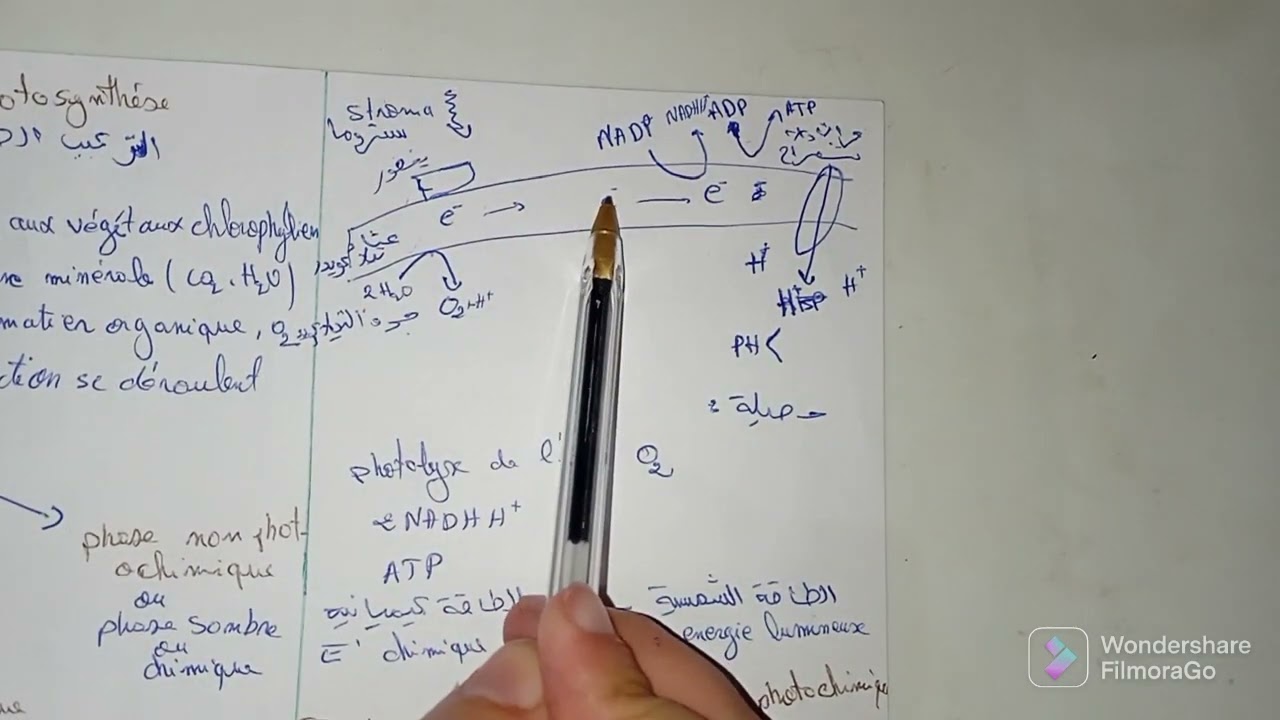 otosynthése
التركيب الض
aux végétaux chlorophylien
re minérale (CO2, H2O)
matier organique, O2
ction se déroulent
phase non phot-
ochimique
ou
phase sombre
ou
chimique
stroma
ستروما
NADP NADHH+ ADP ATP
e- → - → e-
2H2O O2+H+
H+ H+ H+
PH<
photolyse de l' O2
NADH H+
ATP
الطاقة الشمسية
الطاقة كيميائية
E' chimique energie lumineuse
photochimique
Wondershare
FilmoraGo